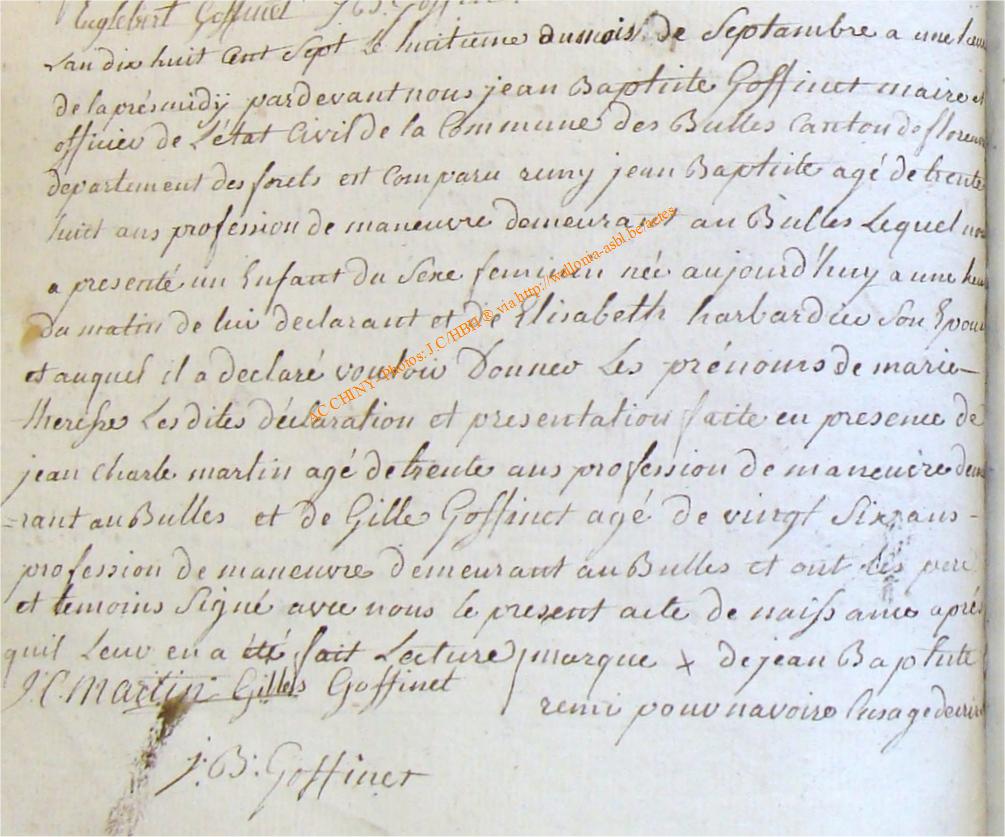 Englebert Goffinet J B Goffinet
Lan dix huit Cent Sept Le huitieme du mois de Septambre a une heure
de laprésmidÿ pardevant nous jean Baptiste Goffinet maire et
officier de L'état Civil de la Commune des Bulles Canton de floren
departement des forets est Comparu remy jean Baptiste agé de trente
huict ans profession de maneuvre demeurant au Bulles Lequel nous
a presenté un Enfant du Sexe feminin née aujourd'huy a une heure
du matin de lui declarant et de Elisabeth harbardieu Son Epouse
et auquel il a declaré vouloir Donner Les prénoms de marie-
therese Les dites déclaration et presentation faite en presence de
jean Charle martin agé de trente ans profession de maneuvre demeu
=rant au Bulles et de Gille Goffinet agé de vingt Six ans -
profession de maneuvre demeurant au Bulles et ont Les pere
et temoins Signé avec nous le present acte de naissance aprés
quil Leur en a été fait Lecture / marque x de jean Baptiste
J.C. Martin Gilles Goffinet
remi pour navoire Lusage decrire
j: B: Goffinet
AC CHINY - Photos: J.C/HBH ® via http://wallonia-asbl.be/actes